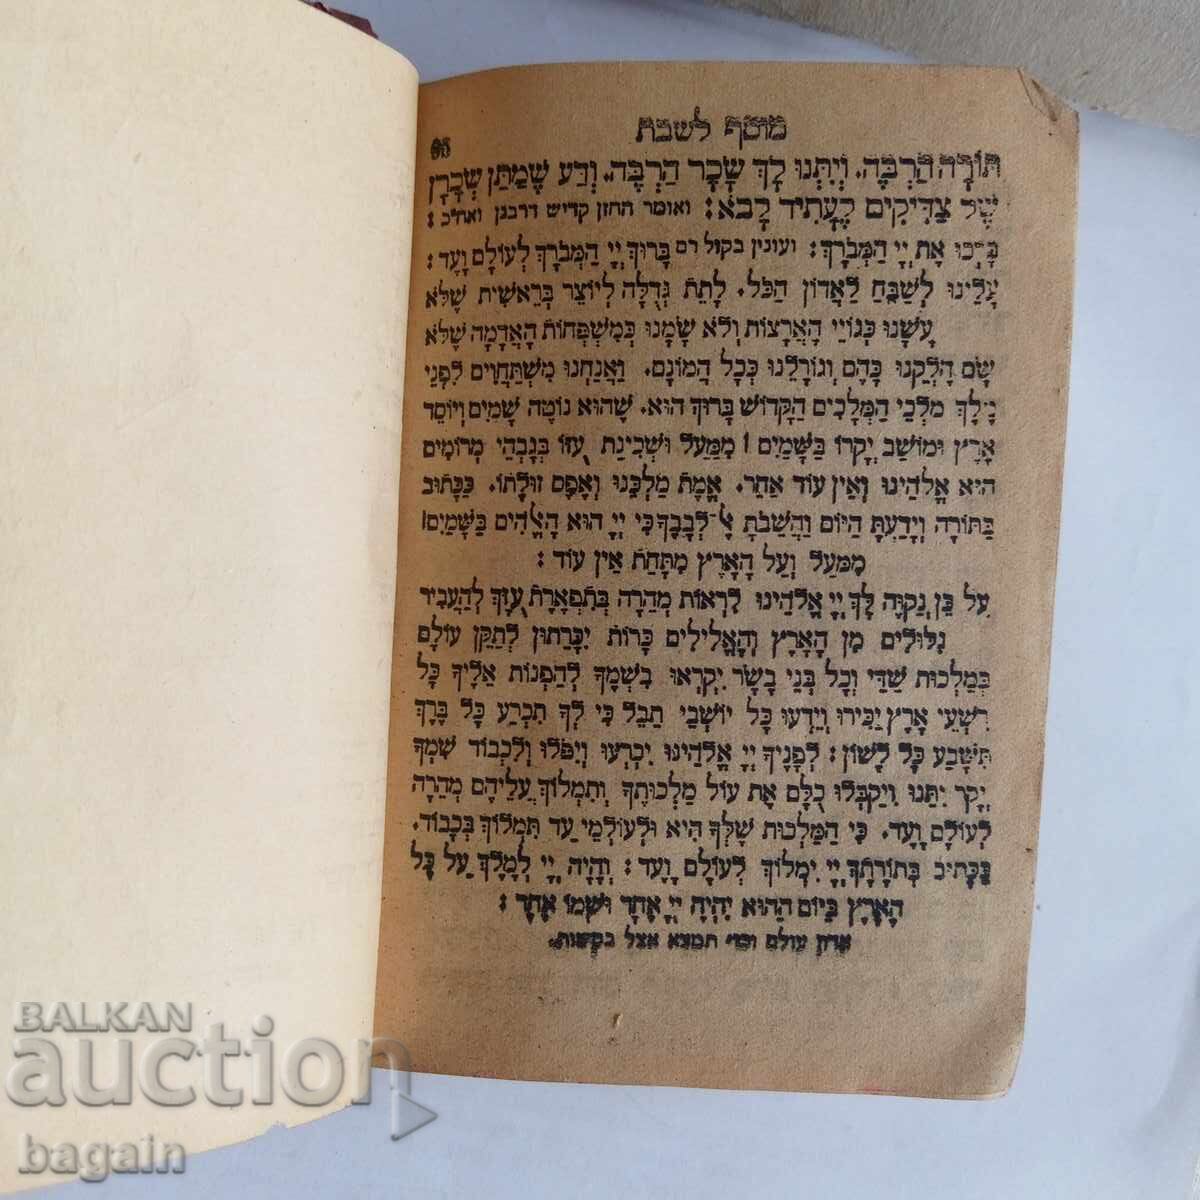 מוסף לשבת
תּוֹרָה הַרְבֵּה. וְיִתְּנוּ לָךְ שָׂכָר הַרְבֵּה. וְדַע שֶׁמַּתַּן שְׂכָרָן
שֶׁל צַדִּיקִים לֶעָתִיד לָבֹא: ואומר החזן קדיש דרבנן ואח״כ:
בָּרְכוּ אֶת יְיָ הַמְבֹרָךְ: ועונין בקול רם בָּרוּךְ יְיָ הַמְבֹרָךְ לְעוֹלָם וָעֶד:
עָלֵינוּ לְשַׁבֵּחַ לַאֲדוֹן הַכֹּל. לָתֵת גְּדֻלָּה לְיוֹצֵר בְּרֵאשִׁית שֶׁלֹּא
עָשָׂנוּ כְּגוֹיֵי הָאֲרָצוֹת וְלֹא שָׂמָנוּ כְּמִשְׁפְּחוֹת הָאֲדָמָה שֶׁלֹּא
שָׂם חֶלְקֵנוּ כָּהֶם וְגוֹרָלֵנוּ כְּכָל הֲמוֹנָם. וַאֲנַחְנוּ מִשְׁתַּחֲוִים לִפְנֵי
מֶלֶךְ מַלְכֵי הַמְּלָכִים הַקָּדוֹשׁ בָּרוּךְ הוּא. שֶׁהוּא נוֹטֶה שָׁמַיִם וְיוֹסֵד
אָרֶץ וּמוֹשַׁב יְקָרוֹ בַּשָּׁמַיִם ׀ מִמַּעַל וּשְׁכִינַת עֻזּוֹ בְּגָבְהֵי מְרוֹמִים
הוּא אֱלֹהֵינוּ וְאֵין עוֹד אַחֵר. אֱמֶת מַלְכֵּנוּ וְאֶפֶס זוּלָתוֹ. כַּכָּתוּב
בַּתּוֹרָה וְיָדַעְתָּ הַיּוֹם וַהֲשֵׁבֹתָ אֶל־לְבָבֶךָ כִּי יְיָ הוּא הָאֱלֹהִים בַּשָּׁמַיִם׀
מִמַּעַל וְעַל הָאָרֶץ מִתָּחַת אֵין עוֹד:
עַל כֵּן נְקַוֶּה לָּךְ יְיָ אֱלֹהֵינוּ לִרְאוֹת מְהֵרָה בְּתִפְאֶרֶת עֻזֶּךָ לְהַעֲבִיר
גִּלּוּלִים מִן הָאָרֶץ וְהָאֱלִילִים כָּרוֹת יִכָּרֵתוּן לְתַקֵּן עוֹלָם
בְּמַלְכוּת שַׁדַּי וְכָל בְּנֵי בָשָׂר יִקְרְאוּ בִשְׁמֶךָ לְהַפְנוֹת אֵלֶיךָ כָּל
רִשְׁעֵי אָרֶץ יַכִּירוּ וְיֵדְעוּ כָּל יוֹשְׁבֵי תֵבֵל כִּי לְךָ תִכְרַע כָּל בֶּרֶךְ
תִּשָּׁבַע כָּל לָשׁוֹן: לְפָנֶיךָ יְיָ אֱלֹהֵינוּ יִכְרְעוּ וְיִפֹּלוּ וְלִכְבוֹד שִׁמְךָ
יְקָר יִתֵּנוּ וִיקַבְּלוּ כֻלָּם אֶת עוֹל מַלְכוּתֶךָ וְתִמְלוֹךְ עֲלֵיהֶם מְהֵרָה
לְעוֹלָם וָעֶד. כִּי הַמַּלְכוּת שֶׁלְּךָ הִיא וּלְעוֹלְמֵי עַד תִּמְלוֹךְ בְּכָבוֹד.
כַּכָּתוּב בְּתוֹרָתֶךָ יְיָ יִמְלוֹךְ לְעוֹלָם וָעֶד: וְהָיָה יְיָ לְמֶלֶךְ עַל כָּל
הָאָרֶץ בַּיּוֹם הַהוּא יִהְיֶה יְיָ אֶחָד וּשְׁמוֹ אֶחָד:
אדון עולם וכו׳ תמצא אצל בקשות.
BALKAN
auction
bagain